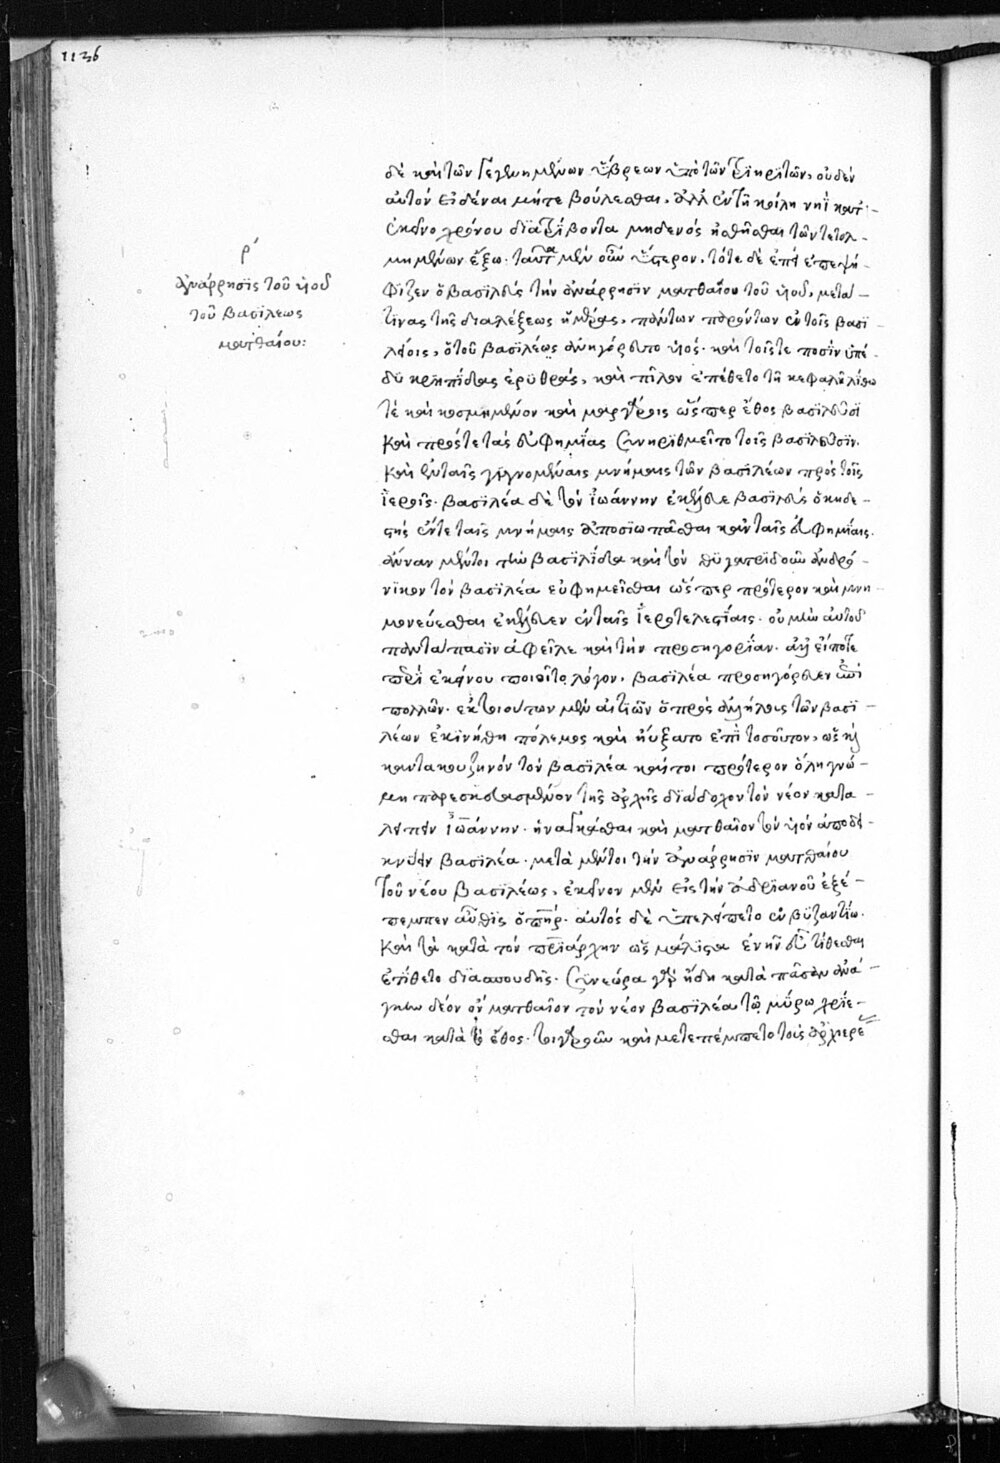 1136
ρ´
ἀνάρρησϊς τοῦ ὑιοῦ
τοῦ βασϊλεως
ματθαίου:
δὲ καὶ τῶν γεγενημένων ὕβρεων ὑπὸ τῶν τριηριτῶν, οὐδὲν
αὐτὸν εἰδέναι μήτε βούλεσθαι. ἀλλ' ἐν τῆ κοίλη νηῒ κατ' -
ἐκεῖνο χρόνου διατρίβοντα μηδενὸς ἠσθῆσθαι τῶν τετολ -
μημένων ἔξω. ταῦτα μὲν οὖν ὕστερον. τότε δὲ ἐπεὶ ἐπεψή -
φϊζεν ὁ βασϊλεὺς τὴν ἀνάρρησϊν ματθαίου τοῦ ὑιοῦ, μετά -
τϊνας τῆς διαλέξεως ἡμέρας, πάντων παρόντων ἐν τοῖς βασϊ -
λείοις, ὁ τοῦ βασϊλέως ἀνηγόρευτο ὑιός. καὶ τοῖς τε ποσϊν ὑπέ -
δυ κρηπίδας ἐρυθράς, καὶ πῖλον ἐπέθετο τῆ κεφαλῆ λίθω
τὲ καὶ κοσμημένον καὶ μαργάροις ὥσπερ ἔθος βασϊλεῦσϊ
καὶ πρός τε τὰς εὐφημίας συνηριθμεῖτο τοῖς βασϊλεῦσϊν.
καὶ ἐν ταῖς γιγνομέναις μνήμαις τῶν βασϊλέων πρὸς τοῖς
ἱεροῖς. βασϊλέα δὲ τὸν ἰωάννην ἐκέλευε βασϊλεὺς ὁ κηδε -
στὴς ἔν τε ταῖς μνήμαις ἀποσϊωπᾶσθαι κἀν ταῖς εὐφημίαις.
ἄνναν μέντοι τὴν βασϊλίδα καὶ τὸν θυγατριδοῦν ἀνδρό -
νϊκον τὸν βασϊλέα εὐφημεῖσθαι ὥσπερ πρότερον καὶ μνη -
μονεύεσθαι ἐκέλευεν ἐν ταῖς ἱεροτελεστίαις. οὐ μὴν αὐτοῦ
παντάπασϊν ἀφεῖλε καὶ τὴν προσηγορίαν. ἀλλ' εἴποτε
περὶ ἐκείνου ποιοῖτο λόγον, βασϊλέα προσηγόρευεν ἐπὶ
πολλῶν. ἐκ τοιούτων μὲν αἰτϊῶν ὁ πρὸς ἀλλήλους τῶν βασϊ -
λέων ἐκϊνήθη πόλεμος καὶ ηὔξατο ἐπὶ τοσοῦτον, ὡς καὶ
καντακουζηνὸν τὸν βασϊλέα καίτοι πρότερον ὅλη γνώ -
μη παρεσκευασμένον τῆς ἀρχῆς διάδοχον τὸν νέον κατα -
λιπεῖν ἰωάννην. ἠναγκάσθαι καὶ ματθαῖον τὸν ὑιὸν ἀποδει -
κνύειν βασϊλέα. μετὰ μέντοι τὴν ἀνάρρησϊν ματθαίου
τοῦ νέου βασϊλέως, ἐκεῖνον μὲν εἰς τὴν ἀδρϊανοῦ ἐξέ -
πεμπεν αὖθϊς ὁ πηρ. αὐτὸς δὲ ὑπελείπετο ἐν βυζαντίω.
καὶ τὰ κατὰ τὸν πριάρχην ὡς μάλϊστα ἐνῆν εὖ τίθεσθαι
ἐτίθετο διὰ σπουδῆς. συνεώρα γὰρ ἤδη κατὰ πᾶσαν ἀνά -
γκην δέον ὂν ματθαῖον τὸν νέον βασϊλέα τῶ μύρω χρίε -
σθαι κατὰ τὸ ἔθος. τοιγαροῦν καὶ μετεπέμπετο τοὺς ἀρχιερέ